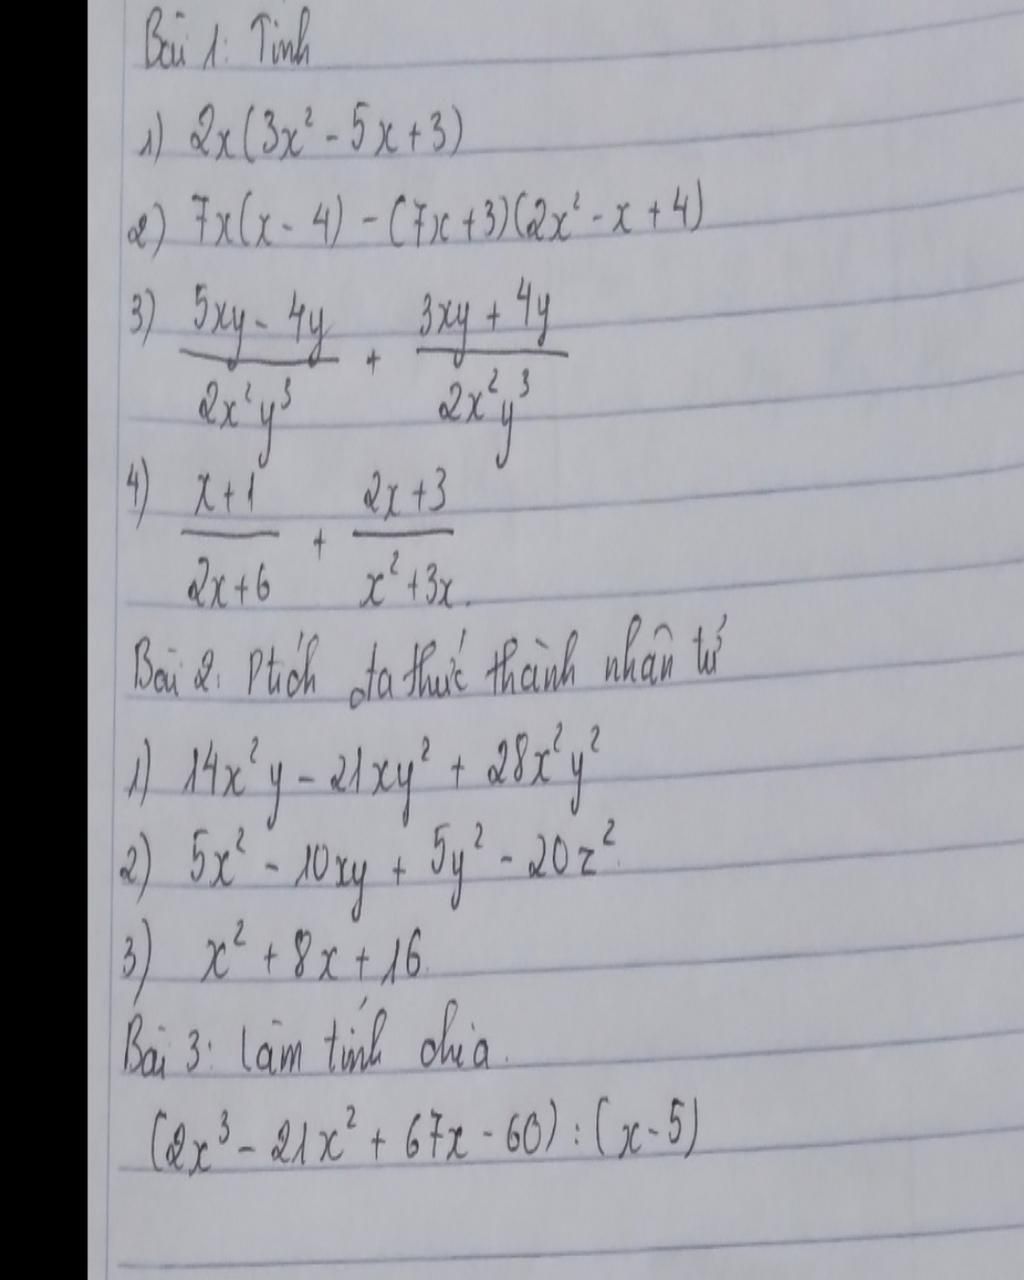 Bài 1: Tính
1) 2x(3x² - 5x + 3)
2) 7x(x - 4) - (7x + 3)(2x² - x + 4)
3) \frac{5xy - 4y}{2x²y³} + \frac{3xy + 4y}{2x²y³}
4) \frac{x + 1}{2x + 6} + \frac{2x + 3}{x² + 3x}.
Bài 2: Ptích đa thức thành nhân tử
1) 14x²y - 21xy² + 28x²y²
2) 5x² - 10xy + 5y² - 20z².
3) x² + 8x + 16.
Bài 3: làm tính chia.
(2x³ - 21x² + 67x - 60) : (x - 5)